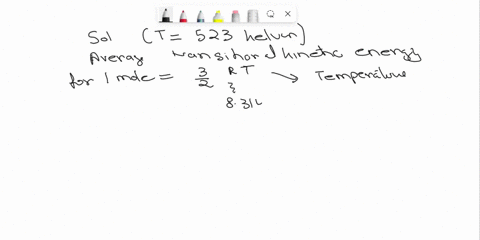 Sol (T = 523 kelvin)
Averay transitional kinetic energy
for 1 mole = 3/2 R T → Temperature
8.314